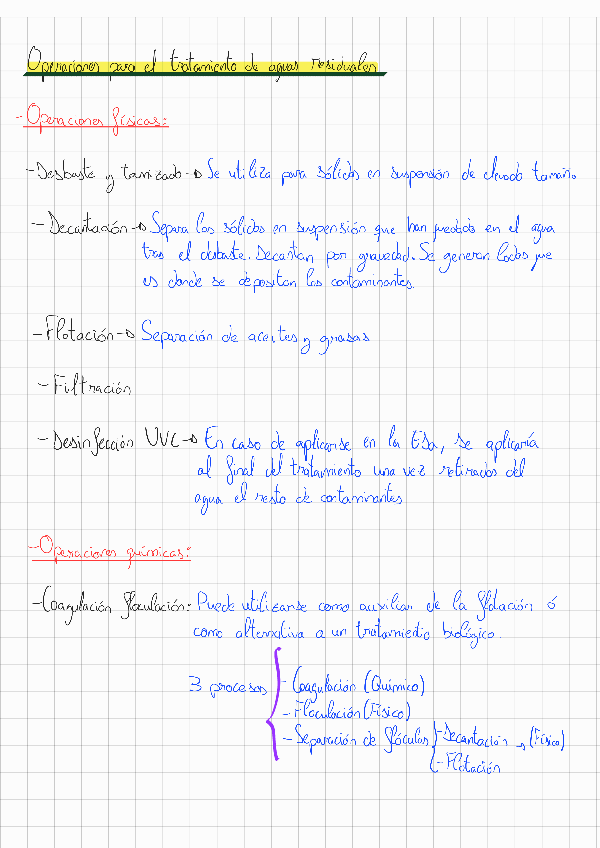 Operaciones para el tratamiento de aguas residuales
- Operaciones físicas:
- Desbaste y tamizado → Se utiliza para sólidos en suspensión de elevado tamaño
- Decantación → Separa los sólidos en suspensión que han quedado en el agua
tras el desbaste. Decantan por gravedad. Se generan lodos que
es donde se depositan los contaminantes.
- Flotación → Separación de aceites y grasas
- Filtración
- Desinfección UVC → En caso de aplicarse en la EDa, se aplicaría
al final del tratamiento una vez retirados del
agua el resto de contaminantes
- Operaciones químicas:
- Coagulación floculación: Puede utilizarse como auxiliar de la flotación ó
como alternativa a un tratamiedio biológico.
3 procesos - Coagulación (Químico)
- Floculación (Físico)
- Separación de flóculos - Decantación → (Físico)
- Flotación